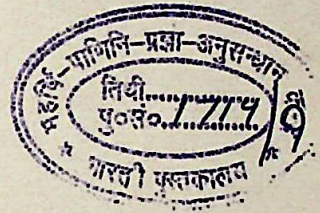 महर्षि-पाणिनि-प्रज्ञा-अनुसन्धान
तिथी...............
पु०सं०.1714....
* भारती पुस्तकालय *